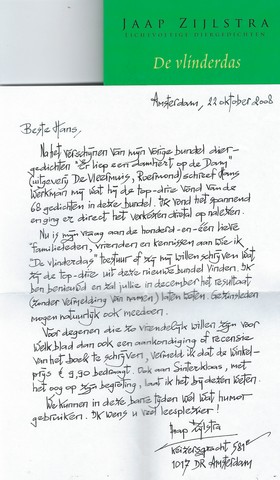 JAAP ZIJLSTRA
LICHTVOETIGE DIERGEDICHTEN
De vlinderdas
Amsterdam, 22 oktober 2008
Beste Hans,
Na het verschijnen van mijn vorige bundel dier-
gedichten "Er liep een lammert op de Dam"
(uitgeverij De Vleermuis, Roermond) schreef Hans
Werkman mij wat hij de top-drie vond van de
68 gedichten in deze bundel. Ik vond het spannend
en ging er direct het verkeren op nalezen.
Nu is mijn vraag aan de honderd-en-één lieve
familieleden, vrienden en kennissen aan wie ik
"De vlinderdas" toestuur of zij mij willen schrijven wat
zij de top-drie uit deze nieuwe bundel vinden. Ik
ben benieuwd en zal jullie in december het resultaat
(zonder vermelding van namen) laten weten. Gezinsleden
mogen natuurlijk ook meedoen.
Voor degenen die zo vriendelijk willen zijn voor
welk blad dan ook een aankondiging of recensie
van het boek te schrijven, vermeld ik dat de winkel-
prijs € 9,90 bedraagt. Ook aan Sinterklaas, met
het oog op zijn begroting, laat ik het bij dezen weten.
We kunnen in deze barre tijden wel wat humor
gebruiken. Ik wens u veel leesplezier!
Jaap Zijlstra
Keizersgracht 581
1017 DR Amsterdam